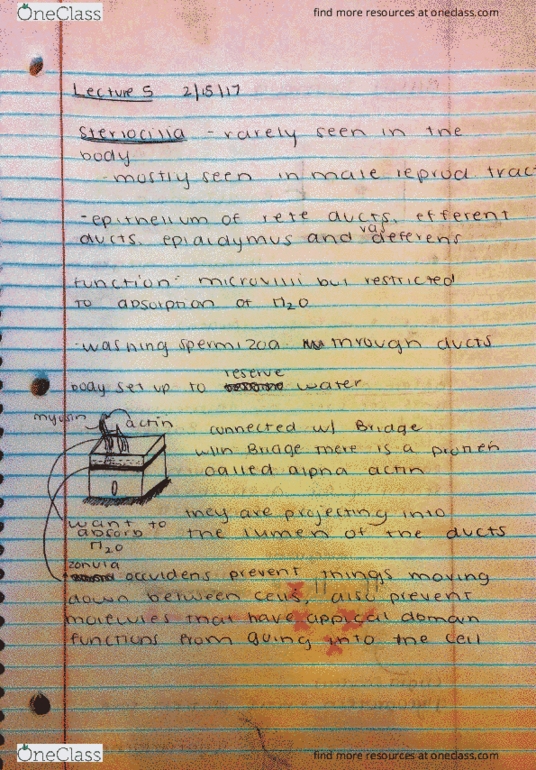 OneClass
find more resources at oneclass.com
Lecture 5 2/15/17
Steriocilia - rarely seen in the
body
-mostly seen in male reprod tract
-epithelium of rete ducts, efferent
vas
ducts, epididymus and deferens
function- microvilli but restricted
to absorption of H2O
-washing spermizoa through ducts
reserve
body set up to water
myosin actin
connected w/ Bridge
w/in Bridge there is a protien
called alpha actin
they are projecting into
the lumen of the ducts
want to
absorb
H2O
zonula
occludens prevent things moving
down between cells, also prevent
molecules that have appical domain
functions from going into the cell
OneClass
find more resources at oneclass.com